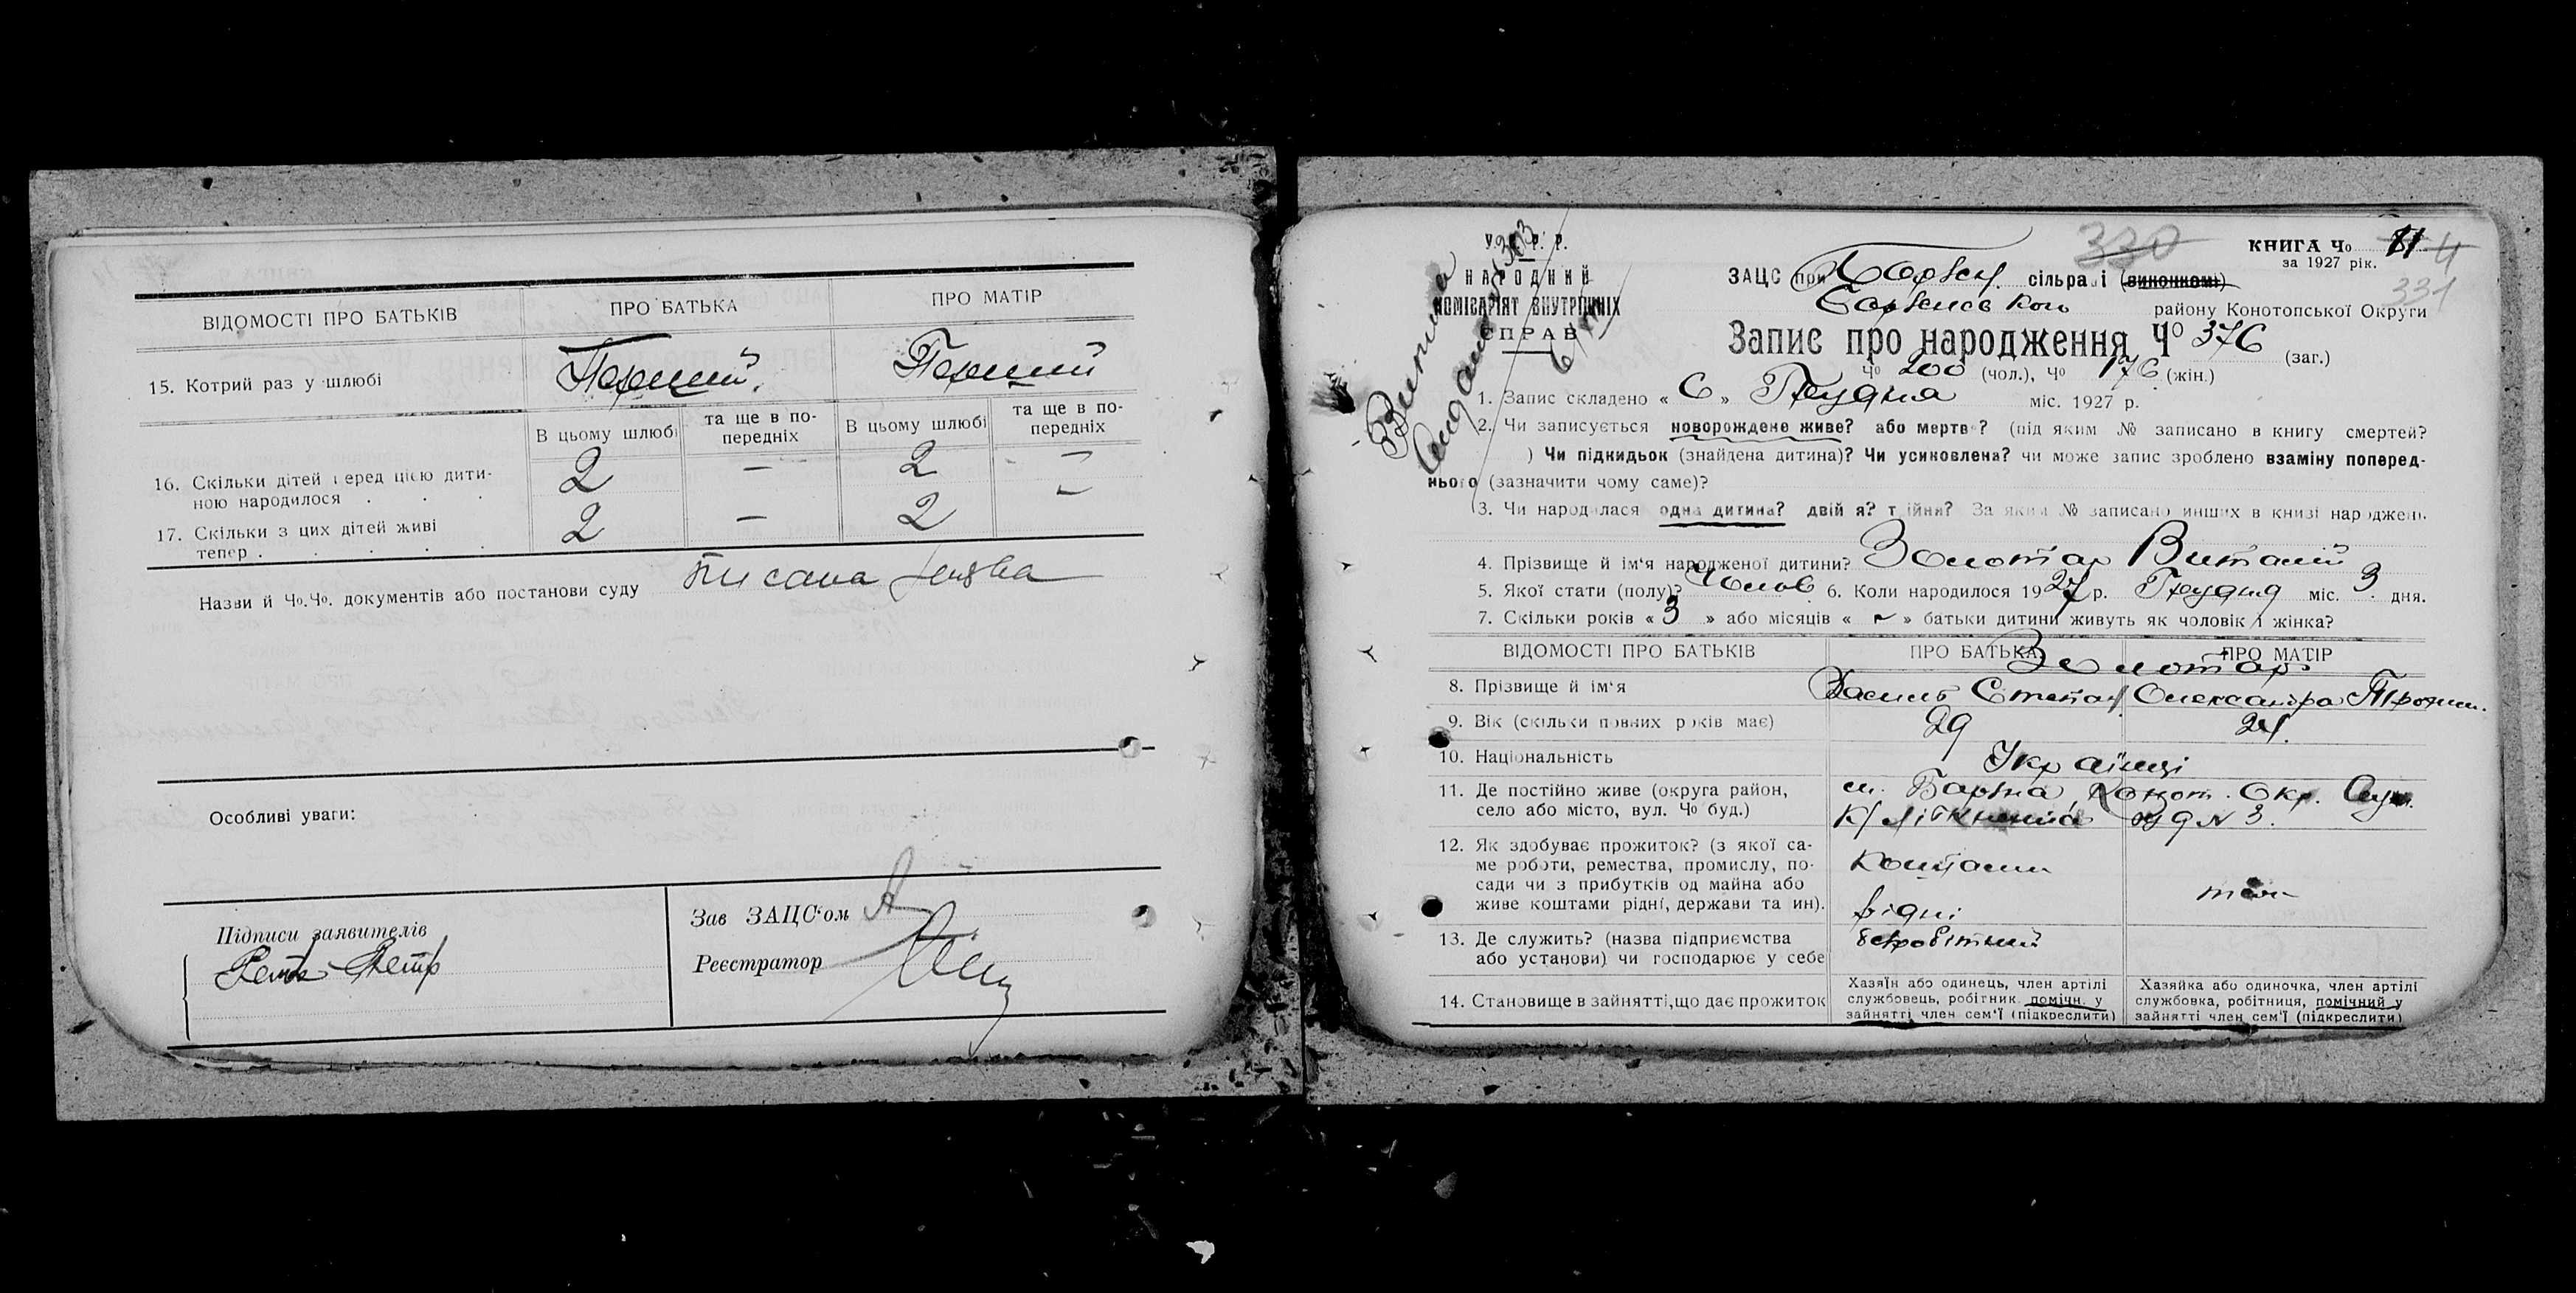 ВІДОМОСТІ ПРО БАТЬКІВ
ПРО БАТЬКА
ПРО МАТІР
15. Котрий раз у шлюбі
Перший
Перший
В цьому шлюбі
та ще в по-
передніх
В цьому шлюбі
та ще в по-
передніх
16. Скільки дітей перед цією дити-
ною народилося . . .
2 — 2 —
17. Скільки з цих дітей живі
тепер . . . . .
2 — 2 —
Назви й Чо.Чо. документів або постанови суду Писана заява
Особливі уваги:
Підписи заявителів
Петр
Зав ЗАЦС'ом
Реєстратор
У. Р. Р.
НАРОДНИЙ
КОМІСАРІЯТ ВНУТРІШНІХ
СПРАВ
Виписка
330
КНИГА Чо 11 4
за 1927 рік.
331
ЗАЦС при Борзен. сільраді (виконкомі)
Борзенсько району Конотопської Округи
Запис про народження Чо 376 (заг.)
Чо 200 (чол.), Чо 176 (жін.)
1. Запис складено « 6 » Грудня міс. 1927 р.
2. Чи записується новорождене живе? або мертве? (під яким № записано в книгу смертей?
) Чи підкидьок (знайдена дитина)? Чи усиновлена? чи може запис зроблено взаміну поперед-
нього (зазначити чому саме)?
3. Чи народилася одна дитина? двійня? трійня? За яким № записано инших в книзі народжень
4. Прізвище й ім'я народженої дитини? Золотар Виталій
5. Якої стати (полу)? Чолов 6. Коли народилося 1927 р. Грудня міс. 3 дня.
7. Скільки років « 3 » або місяців « – » батьки дитини живуть як чоловік і жінка?
ВІДОМОСТІ ПРО БАТЬКІВ
ПРО БАТЬКА
ПРО МАТІР
Золотар
8. Прізвище й ім'я
Василь Степан
Олександра Трохим.
9. Вік (скільки повних років має)
29
24
10. Національність
Українці
11. Де постійно живе (округа район,
село або місто, вул. Чо буд.)
м. Борзна, Конот. Окр.
буд № 3.
12. Як здобуває прожиток? (з якої са-
ме роботи, ремества, промислу, по-
сади чи з прибутків од майна або
живе коштами рідні, держави та ин).
Коштами
рідні
13. Де служить? (назва підприємства
або установи) чи господарює у себе
безробітний
14. Становище в зайнятті, що дає прожиток
Хазяїн або одинець, член артілі
службовець, робітник, помічн. у
зайнятті член сем'ї (підкреслити)
Хазяйка або одиночка, член артілі
службовка, робітниця, помічний у
зайнятті член сем'ї (підкреслити)